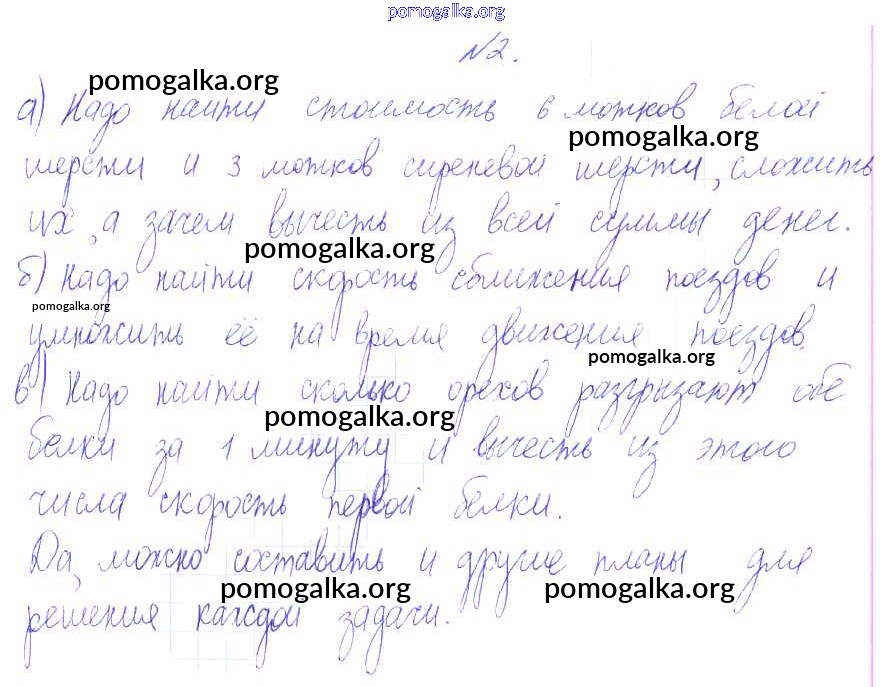 pomogalka.org
№2.
pomogalka.org
а) Надо найти стоимость 6 мотков белой
pomogalka.org
шерсти и 3 мотков сиреневой шерсти, сложить
их, а зачем вычесть из всей суммы денег.
pomogalka.org
б) Надо найти скорость сближения поездов и
pomogalka.org
умножить её на время движения поездов.
pomogalka.org
в) Надо найти сколько орехов разгрызают обе
pomogalka.org
белки за 1 минуту и вычесть из этого
числа скорость первой белки.
Да, можно составить и другие планы для
pomogalka.org pomogalka.org
решения каждой задачи.